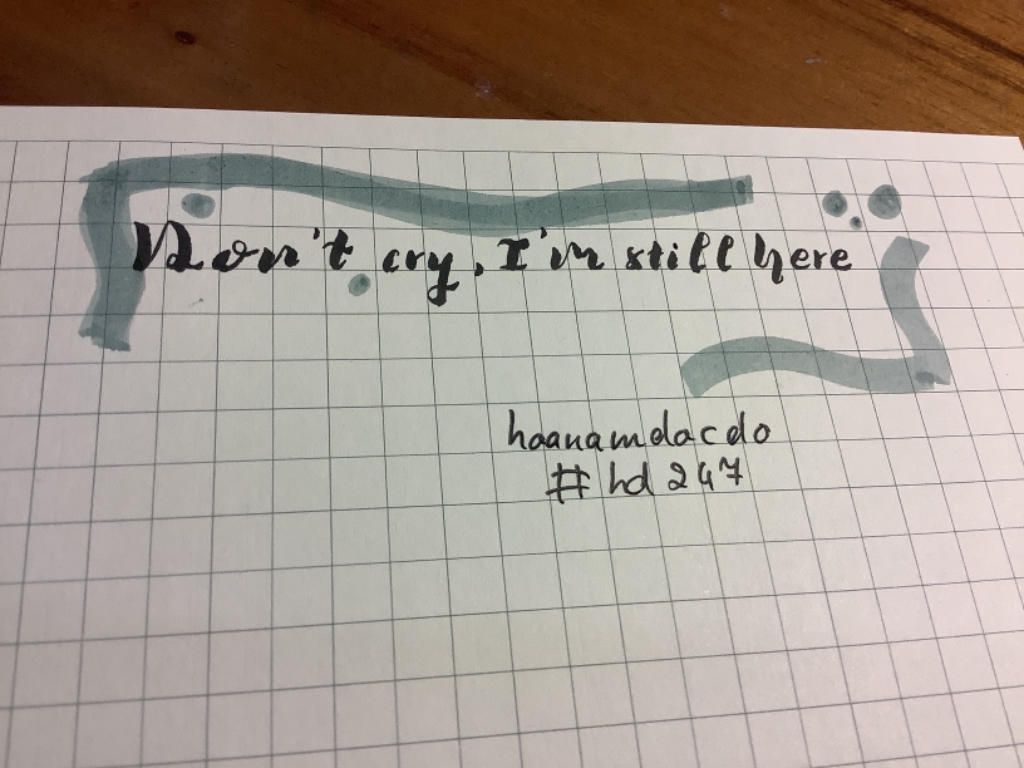 Don't cry, I'm still here
haanamdacdo
# hd 247